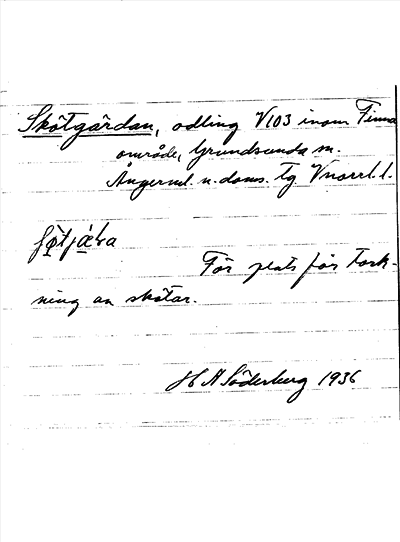 Skötgärdan, odling V103 inom Finna
område, Grundsunda sn.
Ångerml. n. doms. tg Vnorrl. l.
Förr plats för tork-
ning av skötar.
H A Söderberg 1936